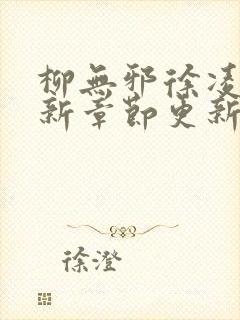 柳無邪徐凌
新章節更新
徐澄